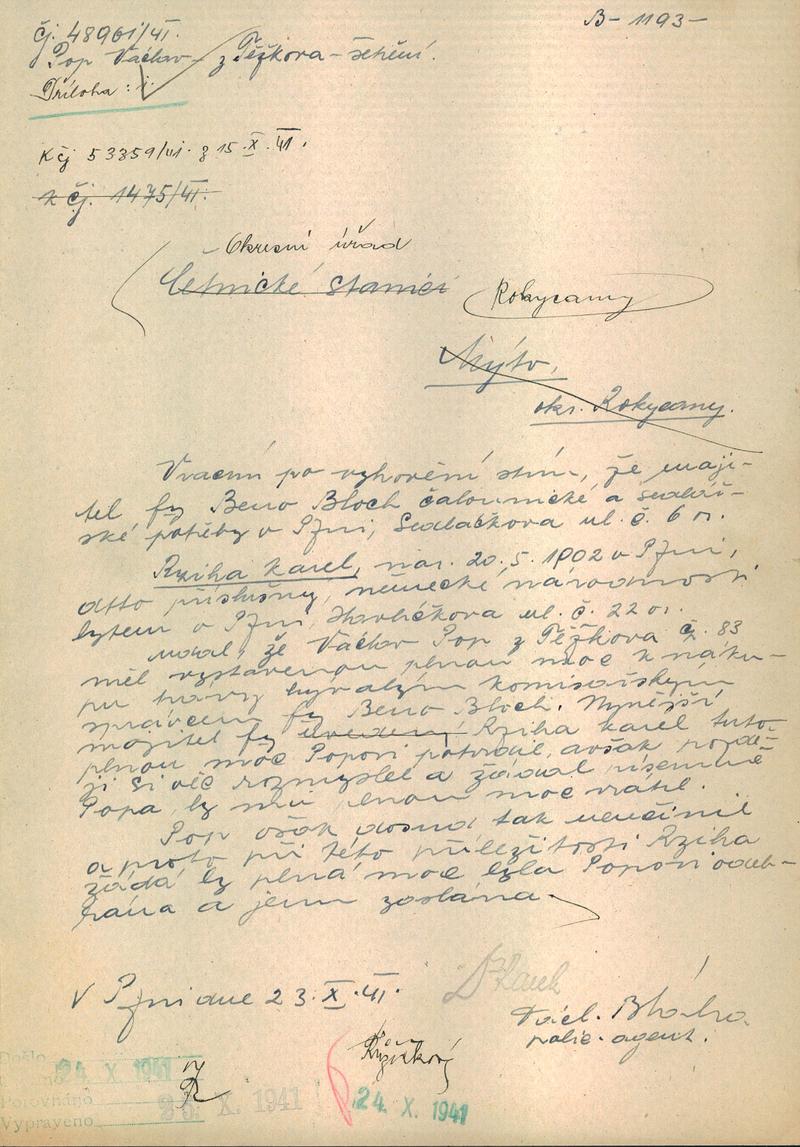 B- 1193-
Čj. 48961/41.
Pop Václav z Těžkova - šetření.
Příloha: 1.
K čj 53359/41. z 15.X.41.
K čj. 1475/41.
Okresní úřad
četnické stanici Rokycany
Mýto,
okr. Rokycany.
Vracím po vyhovění s tím, že maji-
tel fy Beno Bloch čalounické a sedlář-
ské potřeby v Plzni, Sedláčkova ul. č. 6 n.
Rziha Karel, nar. 20.5.1902 v Plzni,
dtto příslušný, německé národnosti
bytem v Plzni, Havlíčkova ul. č. 22
udal, že Václav Pop z Těžkova č. 83
měl vystavenou plnou moc k náku-
pu trávy bývalým komisařským
správcem fy Beno Bloch. Nynější
majitel fy uvedený Rziha Karel tuto
plnou moc Popovi potvrdil, avšak pozdě-
ji si věc rozmyslel a žádal písemně
Popa by mu plnou moc vrátil.
Pop však dosud tak neučinil
a proto při této příležitosti Rziha
žádá by plná moc byla Popovi odeb-
rána a jemu zaslána.
V Plzni dne 23.X.41.
Václ. Bláha
polic. agent.
Došlo 24 X 1941
Porovnáno
Vypraveno 25. X. 1941
24. X. 1941